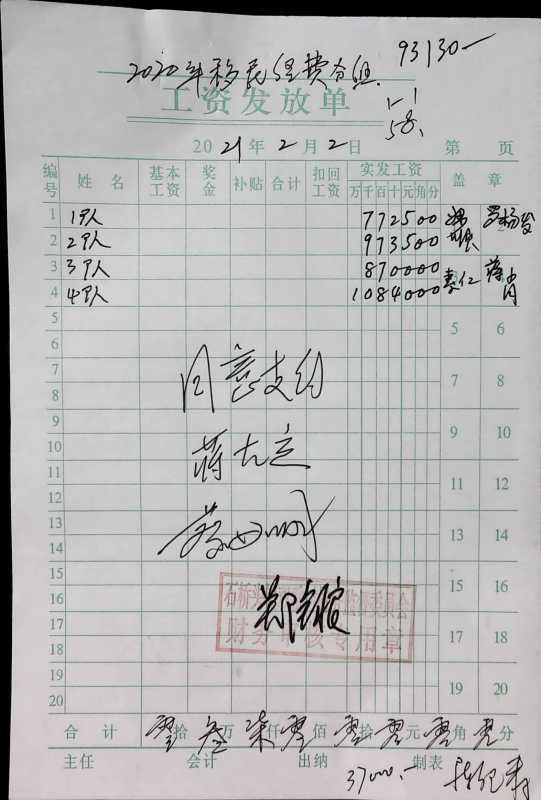 93130—
2020年移民经费分组
工资发放单
58.
2021年2月2日 第 页
编号 姓名 基本工资 奖金 补贴 合计 扣回工资 实发工资 盖章
万千百十元角分
1 1队 772500
2 2队 973500
3 3队 870000
4 4队 1084000
5 5 6
6
7 同意支付 7 8
8
9 9 10
10 蒋
11 11 12
12
13 13 14
14
15 15 16
石桥 监督委员会
16 郑
17 财务 核专用章 17 18
18
19 19 20
20
合计 零拾叁万柒仟零佰零拾零元零角零分
主任 会计 出纳 制表
37000.—